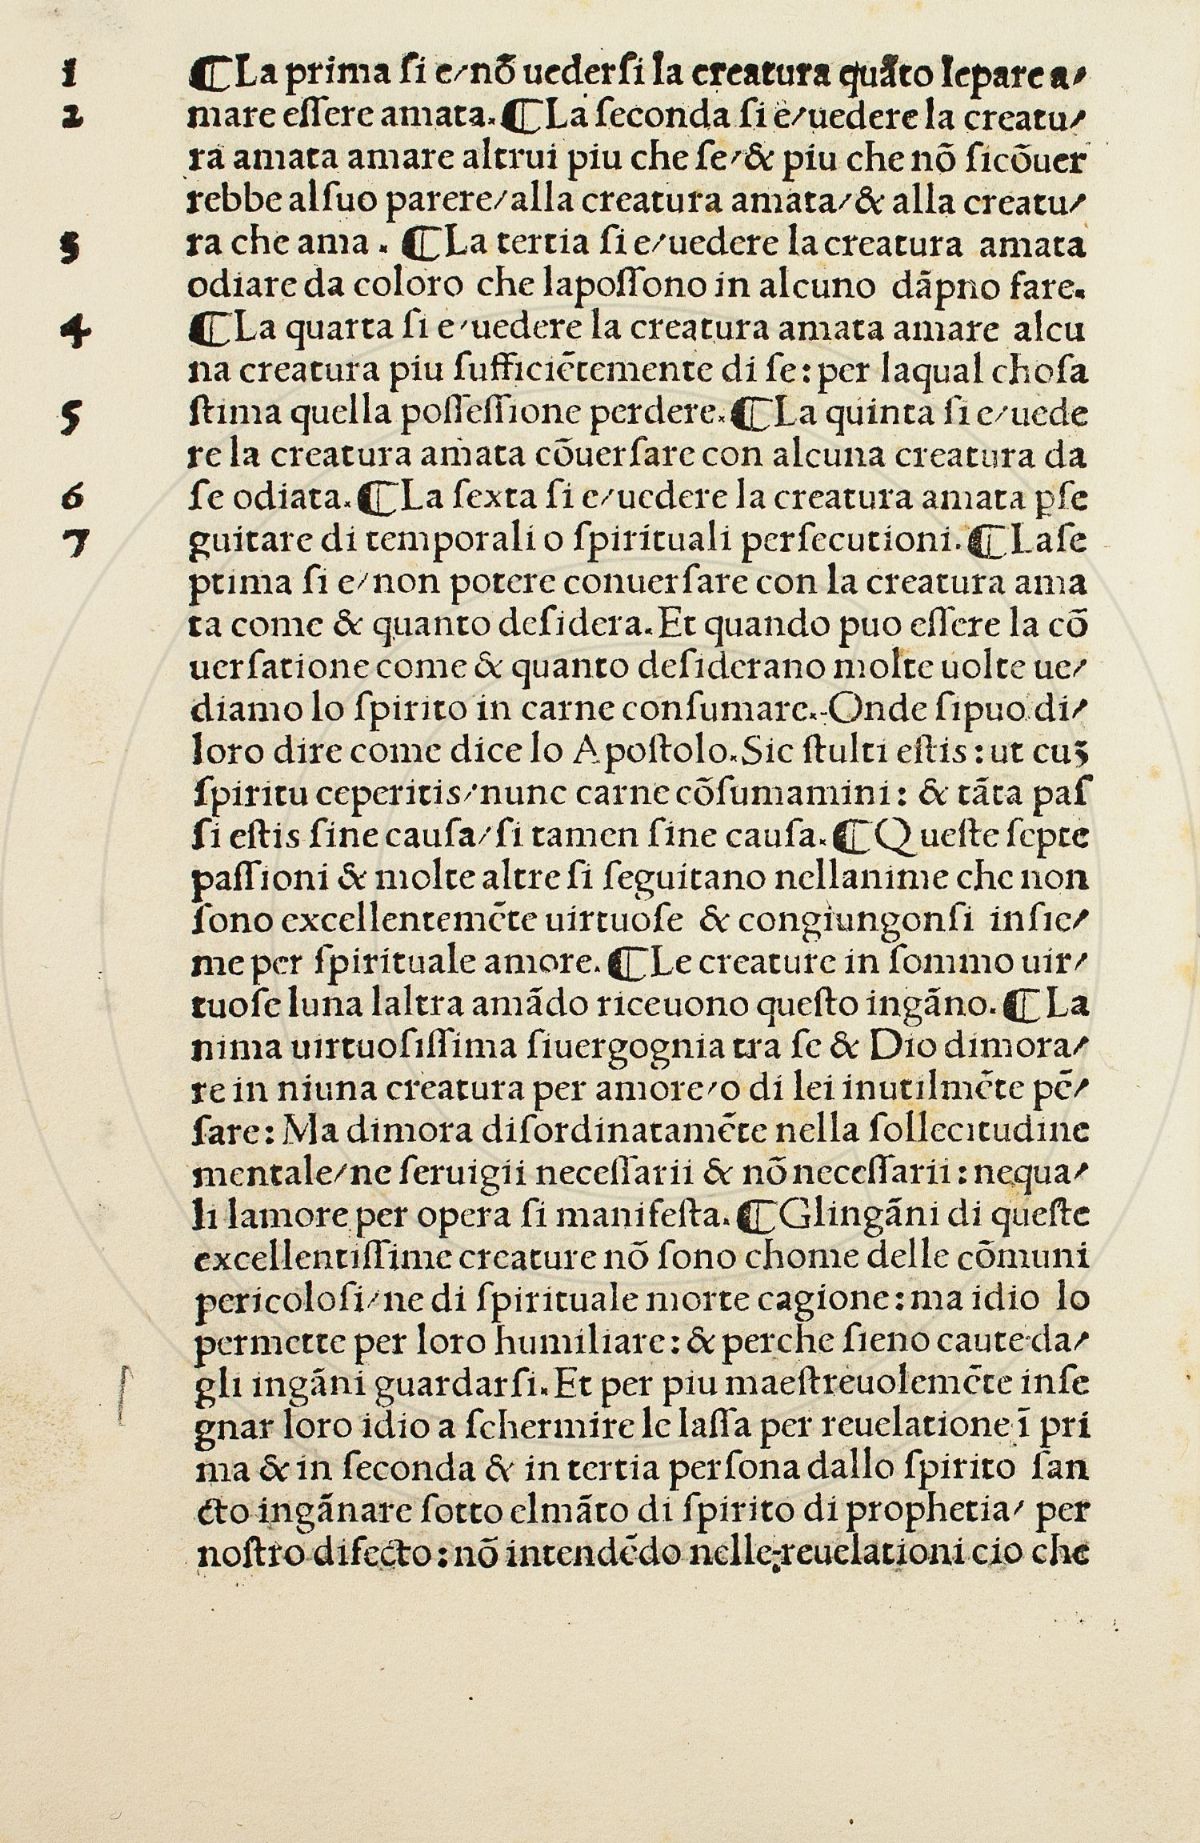 1 ¶La prima ſi e/nõ uederſi la creatura quãto lepare a/
2 mare eſſere amata. ¶La ſeconda ſi e/uedere la creatu/
ra amata amare altrui piu che ſe/& piu che nõ ſicõuer
rebbe alſuo parere/alla creatura amata/& alla creatu/
3 ra che ama. ¶La tertia ſi e/uedere la creatura amata
odiare da coloro che lapoſſono in alcuno dãpno fare.
4 ¶La quarta ſi e/uedere la creatura amata amare alcu
na creatura piu ſufficiẽtemente di ſe: per laqual choſa
5 ſtima quella poſſeſſione perdere. ¶La quinta ſi e/uede
re la creatura amata cõuerſare con alcuna creatura da
6 ſe odiata. ¶La ſexta ſi e/uedere la creatura amata ꝑſe
7 guitare di temporali o ſpirituali perſecutioni. ¶Laſe
ptima ſi e/non potere conuerſare con la creatura ama
ta come & quanto deſidera. Et quando puo eſſere la cõ
uerſatione come & quanto deſiderano molte uolte ue/
diamo lo ſpirito in carne conſumare. Onde ſipuo di/
loro dire come dice lo Apoſtolo. Sic ſtulti eſtis: ut cuꝫ
ſpiritu ceperitis/nunc carne cõſumamini: & tãta paſ
ſi eſtis ſine cauſa/ſi tamen ſine cauſa. ¶Queſte ſepte
paſſioni & molte altre ſi ſeguitano nellanime che non
ſono excellentemẽte uirtuoſe & congiungonſi inſie/
me per ſpirituale amore. ¶Le creature in ſommo uir/
tuoſe luna laltra amãdo riceuono queſto ingãno. ¶La
nima uirtuoſiſſima ſiuergognia tra ſe & Dio dimora/
re in niuna creatura per amore/o di lei inutilmẽte pẽ/
ſare: Ma dimora diſordinatamẽte nella ſollecitudine
mentale/ne ſeruigii neceſſarii & nõ neceſſarii: nequa/
li lamore per opera ſi manifeſta. ¶Glingãni di queſte
excellentiſſime creature nõ ſono chome delle cõmuni
pericoloſi/ne di ſpirituale morte cagione: ma idio lo
permette per loro humiliare: & perche ſieno caute da/
gli ingãni guardarſi. Et per piu maeſtreuolemẽte inſe
gnar loro idio a ſchermire le laſſa per reuelatione ĩ pri
ma & in ſeconda & in tertia perſona dallo ſpirito ſan
cto ingãnare ſotto elmãto di ſpirito di prophetia/ per
noſtro difecto: nõ intendẽdo nelle reuelationi cio che